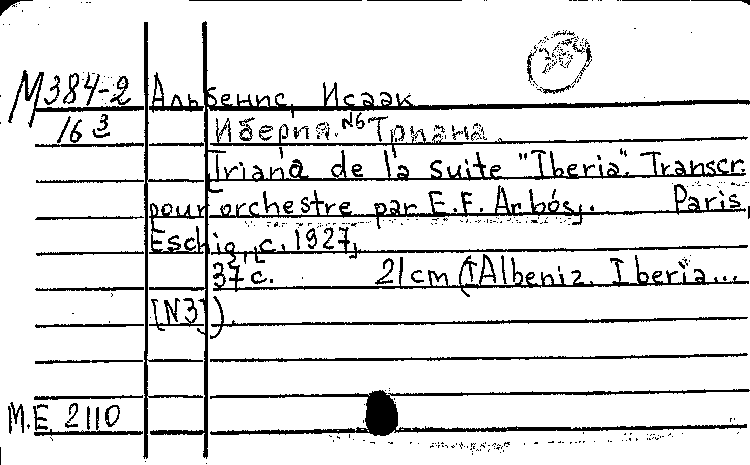 М384-2 Альбенис, Исаак
16 3 Иберия. №6 Триана.
Triana de la suite "Iberia". Transcr.
pour orchestre par E.F. Arbós,. Paris,
Eschig, c. 1927,
37 c. 21 cm (↑Albeniz. Iberia...
[N3]).
M.E. 2110